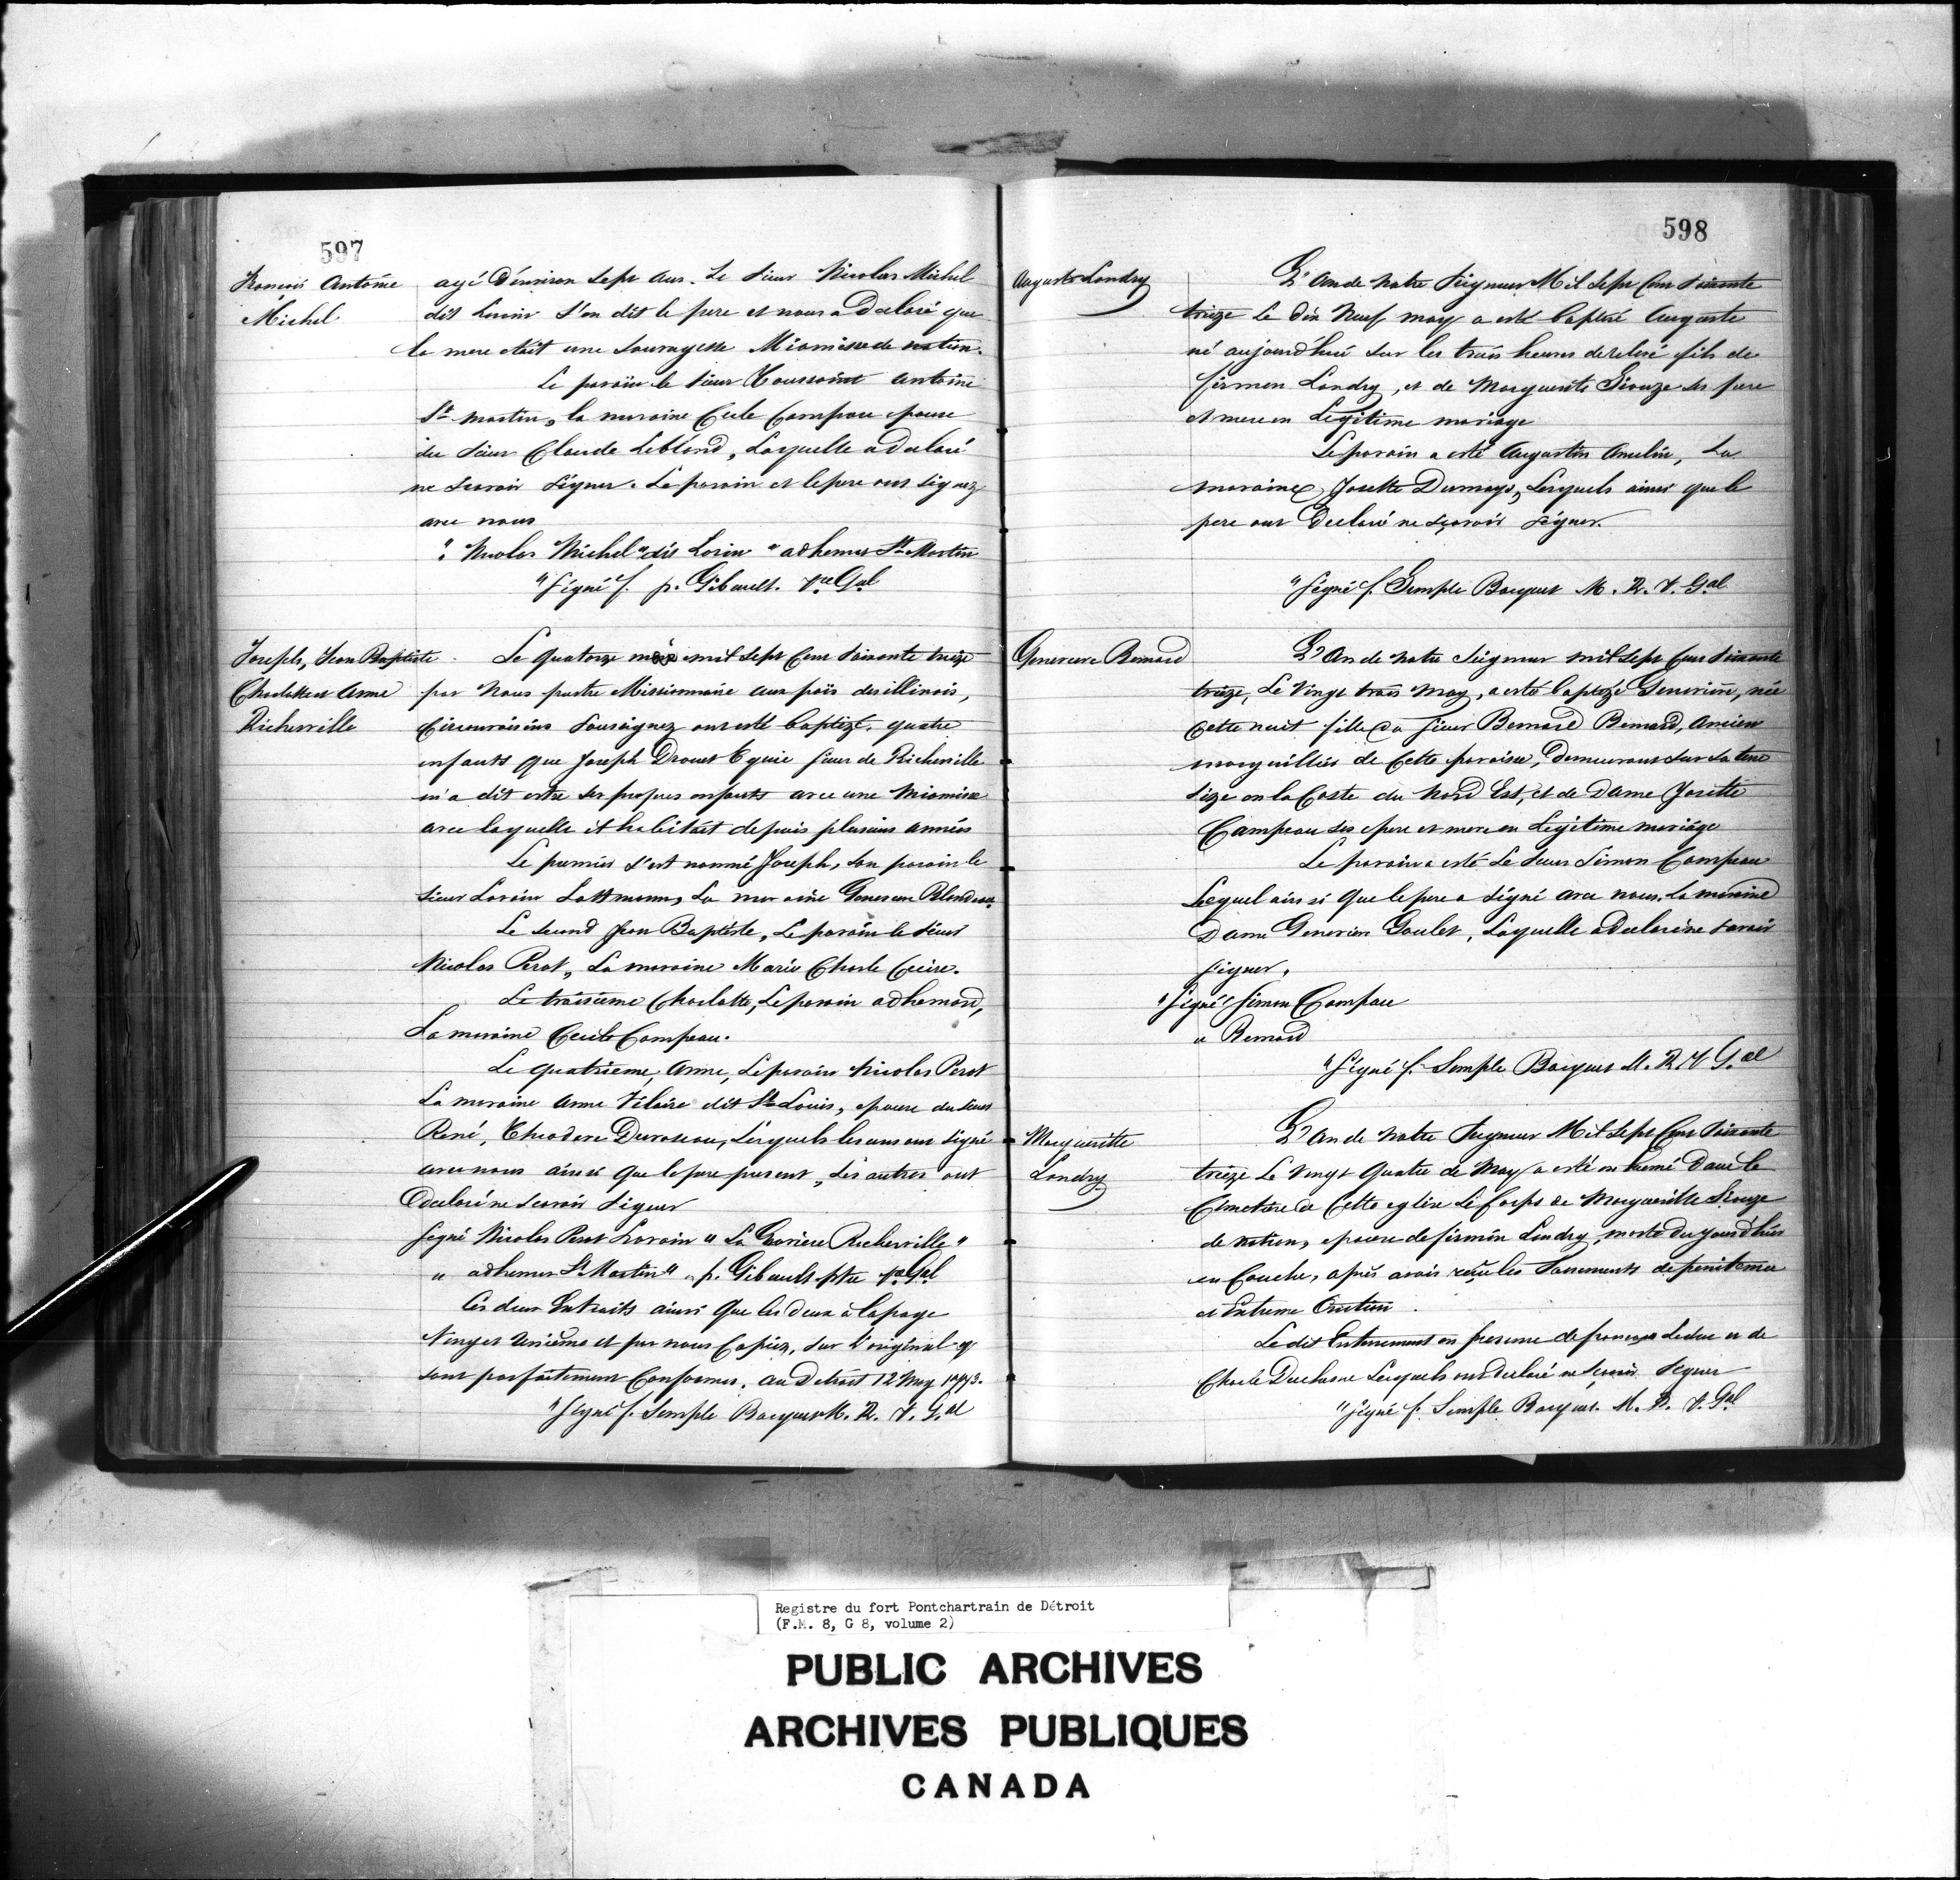 597
François Antoine
Michel
agé d'environ Sept ans. Le Sieur Nicolas Michel
dit Lorain S'en dit le pere et nous a Declaré que
la mere étoit une Sauvagesse Miamisse de nation.
Le parain le Sieur Toussaint Antoine
St martin, la maraine Cecile Campau epouse
du Sieur Claude Leblond, Laquelle a declaré
ne Scavoir Signer. Le parain et le pere ont Signez
avec nous
" Nicolas Michel "dit Lorain " adhemar St Martin
"Signé f. p. Gibault. Vre Gal
Joseph, Jean Baptiste
Charlotte et Anne
Richerville
Le Quatorze mil Sept Cent Soixante treize
par Nous prestre Missionnaire aux païs des illinois,
Circonvoisins Soussignez ont esté baptizé, quatre
enfants que Joseph Drouet Sieur de Richerville
m'a dit estre Ses propres enfants avec une Miamisse
avec laquelle il habitait depuis plusieurs années
Le premier S'est nommé Joseph, Son parain le
Sieur Lorain La mar aine
Le Second Jean Baptiste, Le parain le Sieur
Nicolas Perot, La maraine Marie Charle
Le troisieme Charlotte, Le parain adhemard,
La maraine Cecile Campeau.
Le quatrieme, Anne, Le parain Nicolas Perot
La maraine Anne Vilaire dit St Louis, epouse du Sieur
René, Theodore Duroseau, Lesquels les uns ont Signé
avec nous ainsi Que le pere present, Les autres ont
declaré ne Scavoir Signer
Signé Nicolas Perot Lorain " Richerville "
" adhemar St Martin " p. Gibault ptre Vre Gal
Ces deux Extraits ainsi Que les deux à la page
Vingt et Unième et par nous Copiez, Sur L'original et
Sont parfaitement Conformes. Au Detroit 12 May 1773.
"Signé f. Simple Bocquet M. R. V. Gal
598
Auguste Landry
L'An de Notre Seigneur Mil Sept Cent Soixante
treize le dix Neuf may a esté baptisé Auguste
né aujourdhui Sur les trois heures de relevé fils de
firmin Landry, et de Marguerite Siouze Ses pere
et mere en Legitime mariage
Le parain a esté Augustin Amelin, La
maraine Josette Dumays, Lesquels ainsi que le
pere ont Declaré ne Sçavoir Signer.
"Signé f. Simple Bocquet M. R. V. Gal
Genevieve Bernard
L'An de Notre Seigneur mil Sept Cent Soixante
treize, Le Vingt trois May, a esté baptizé née
Cette nuit fille du Sieur Bernard, Ancien
marguillier de Cette paroisse, Demeurant Sur Sa terre
Size en la Coste du Nord Est, et de Dame Josette
Campeau Ses pere et mere en Legitime mariage
Le parain a esté Le Sieur Simon Campeau
Lequel ainsi Que le pere a Signé avec nous. La maraine
Dame Genevieve Goulet, Laquelle a declaré ne Savoir
Signer.
"Signé Simon Campau
" Bernard
"Signé f. Simple Bocquet M. R V Gal
Marguerite
Landry
L'An de Notre Seigneur Mil Sept Cent Soixante
treize Le Vingt Quatre de May a esté en humé Dans le
Cimetiere de Cette eglise Le Corps de Marguerite Siouze
de nation, epouse de firmin Landry, morte du jourdhuy
en Couche, après avoir reçu les Sacrements de penitence
et Extreme Onction.
Le dit Enterrement en presence de francois Leduc et de
Charle Duchesne Lesquels ont declaré ne Scavoir Signer
"Signé f. Simple Bocquet. M. R. V. Gal
Registre du fort Pontchartrain de Détroit
(F.M. 8, G 8, volume 2)
PUBLIC ARCHIVES
ARCHIVES PUBLIQUES
CANADA